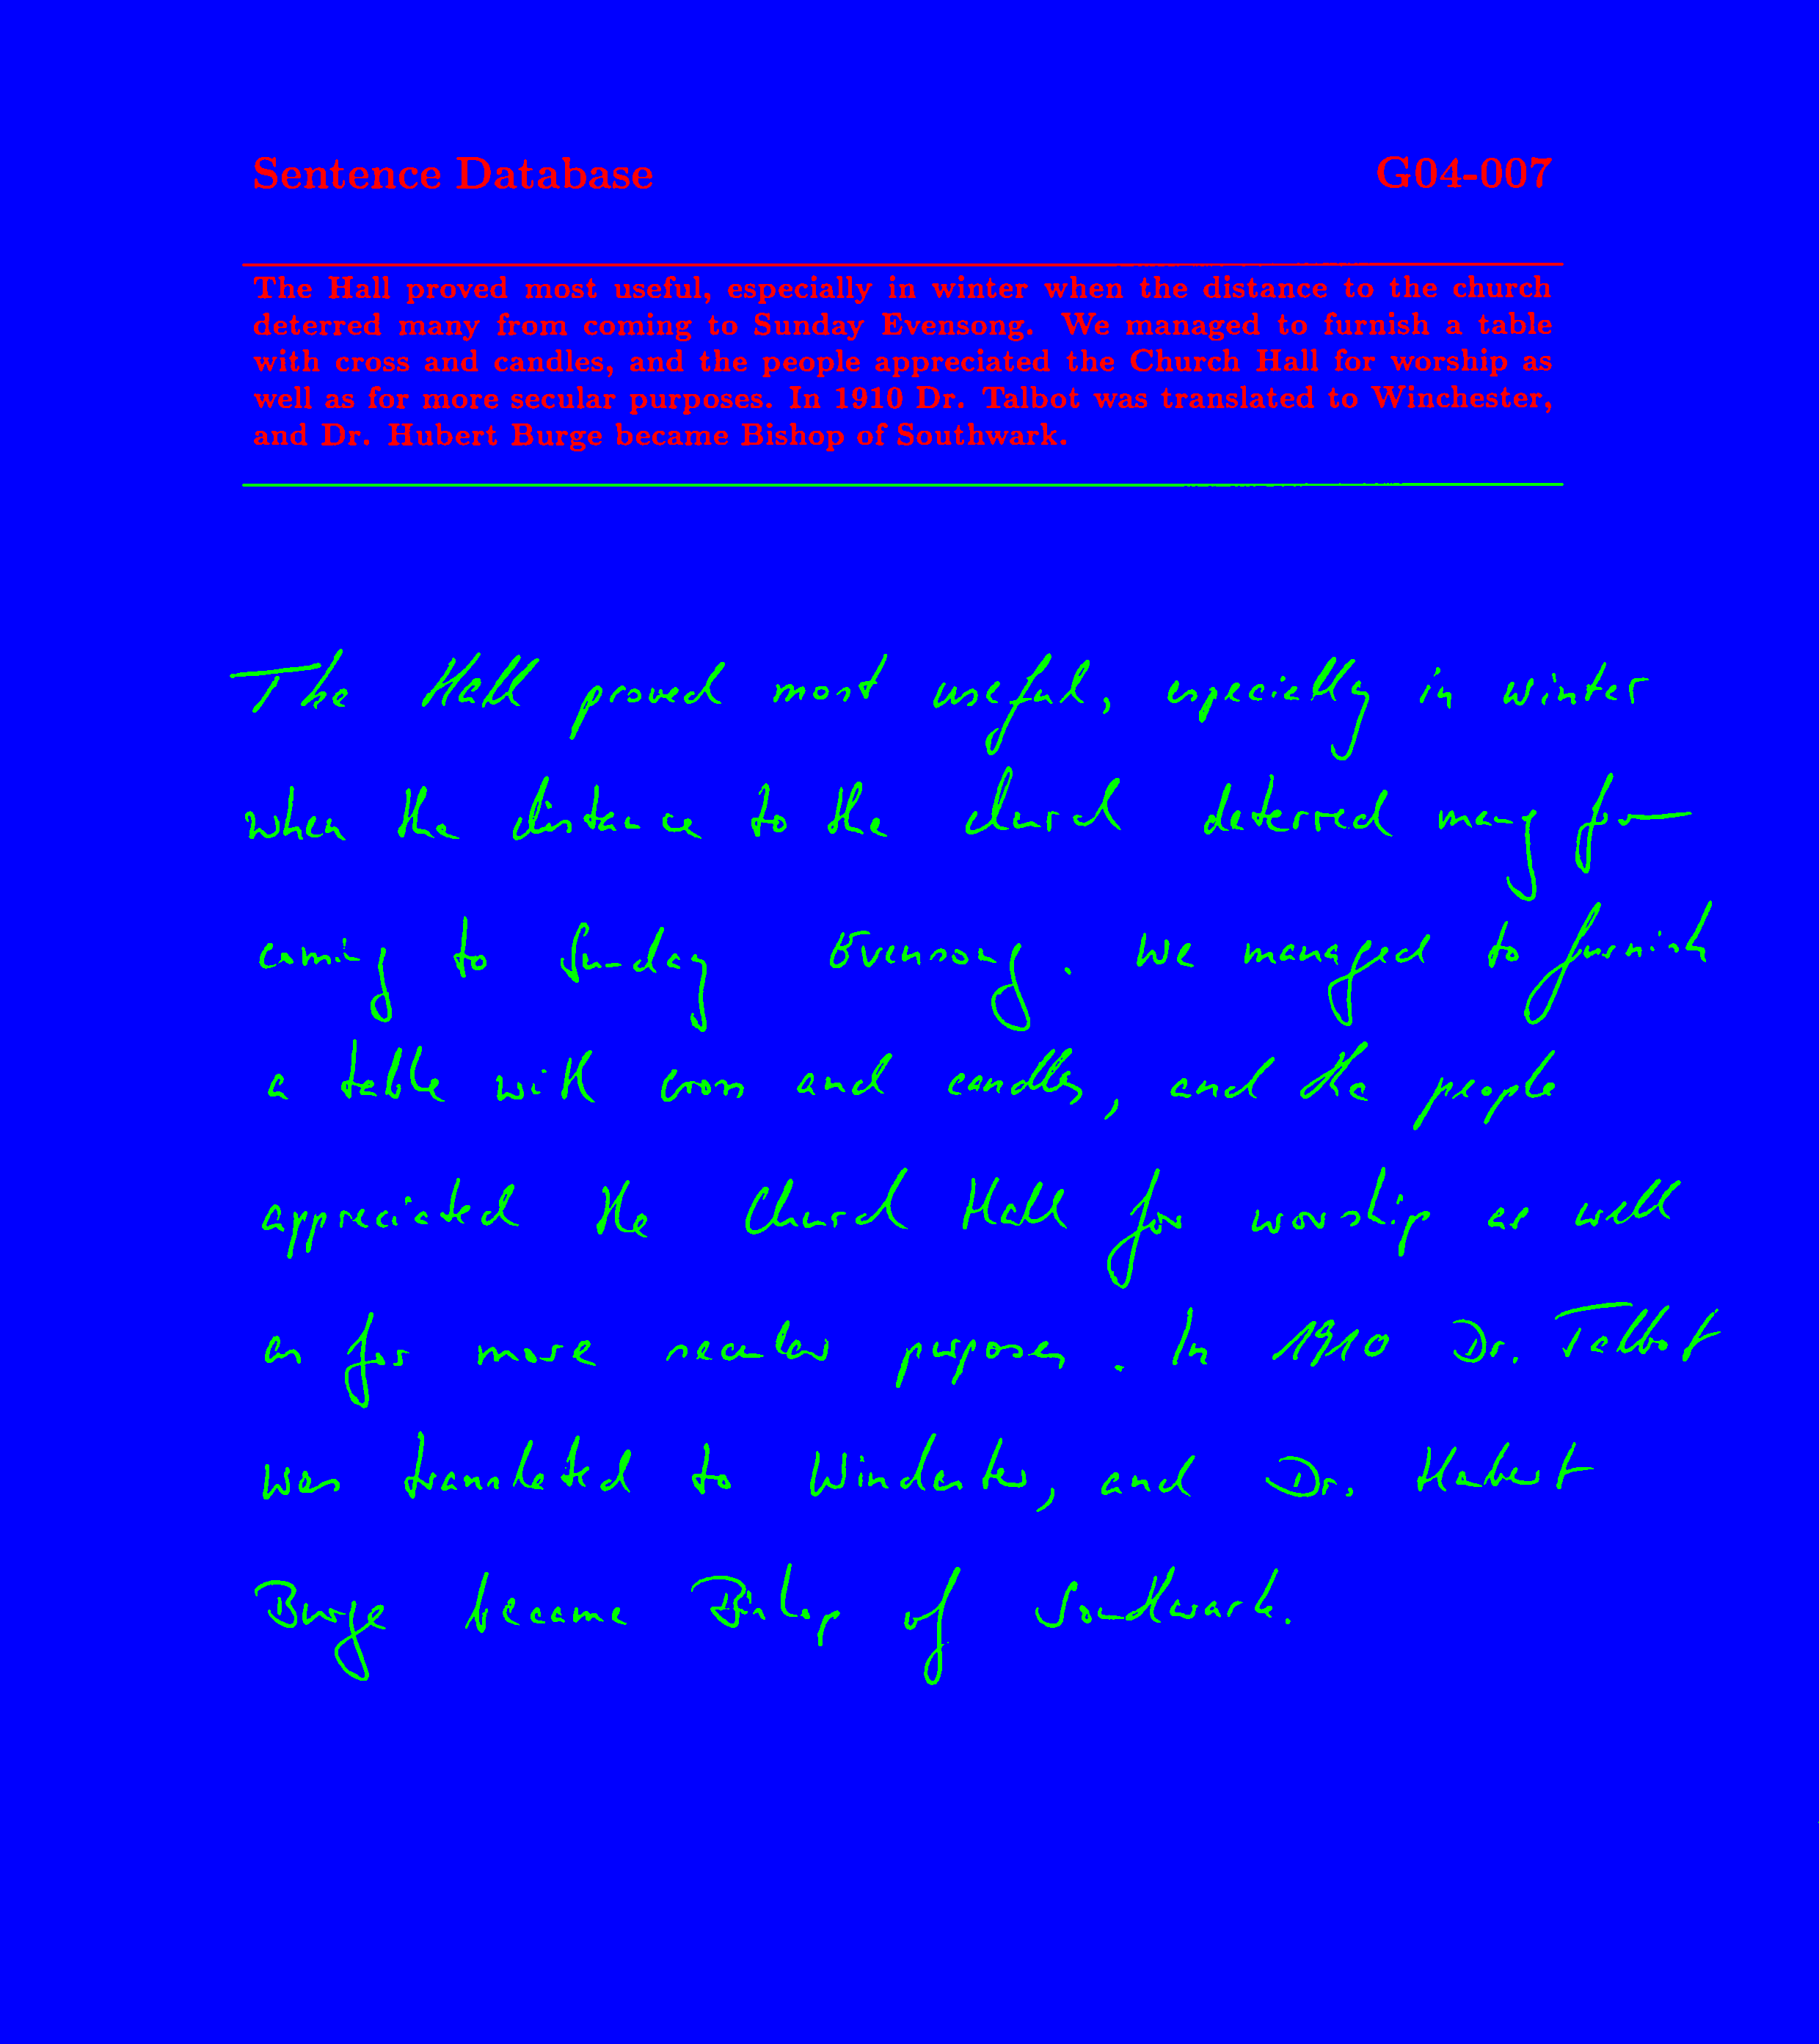 Sentence Database G04-007
The Hall proved most useful, especially in winter when the distance to the church
deterred many from coming to Sunday Evensong. We managed to furnish a table
with cross and candles, and the people appreciated the Church Hall for worship as
well as for more secular purposes. In 1910 Dr. Talbot was translated to Winchester,
and Dr. Hubert Burge became Bishop of Southwark.
The Hall proved most useful, especially in winter
when the distance to the church deterred many from
coming to Sunday Evensong. We managed to furnish
a table with cross and candles, and the people
appreciated the Church Hall for worship as well
as for more secular purposes. In 1910 Dr. Talbot
was translated to Winchester, and Dr. Hubert
Burge became Bishop of Southwark.